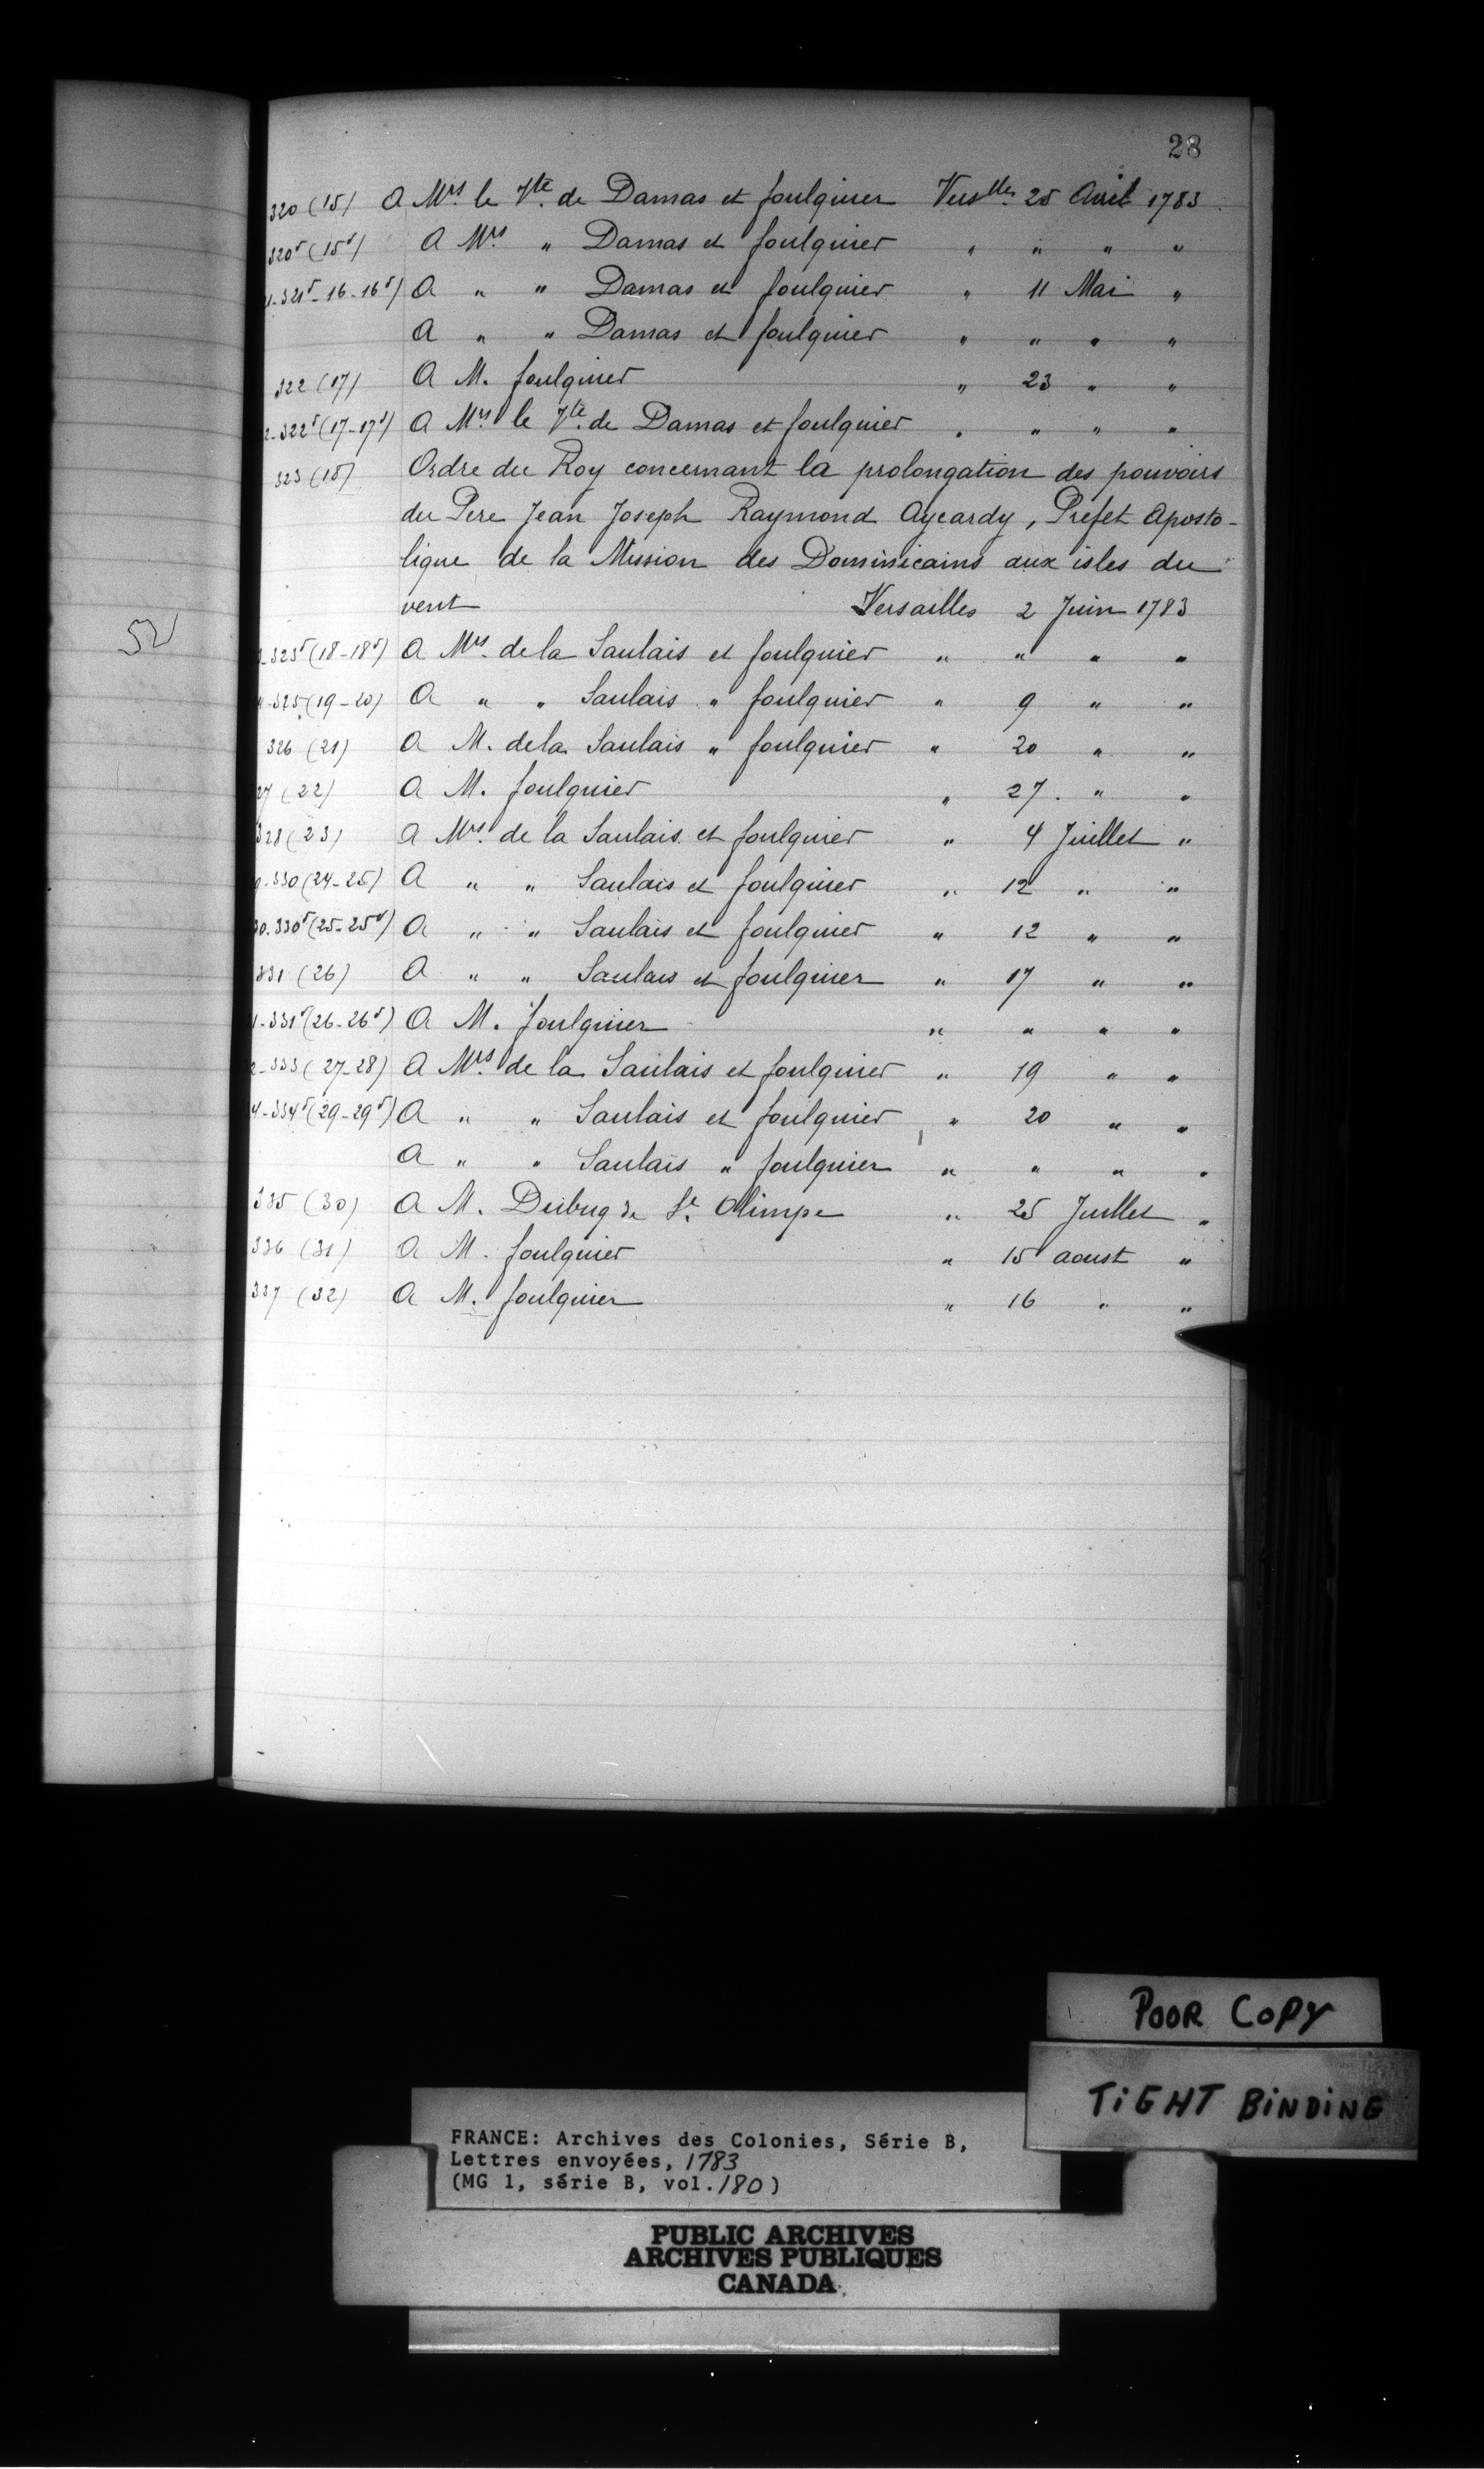 28
320 (15) A Mrs. le Vte. de Damas et foulquier Verslles. 25 Avril 1783.
320v (15v) A Mrs. " Damas et foulquier " " " "
1-321v-16-16v) A " " Damas et foulquier " 11 Mai "
A " " Damas et foulquier " " " "
322 (17) A M. foulquier " 23 " "
2-322v (17-17v) A Mrs. le Vte. de Damas et foulquier " " " "
323 (18) Ordre du Roy concernant la prolongation des pouvoirs
du Pere Jean Joseph Raymond Aycardy, Prefet Aposto-
lique de la Mission des Dominicains aux isles du
vent Versailles 2 Juin 1783
52
3-323v (18-18v) A Mrs. de la Saulais et foulquier " " " "
4-325 (19-20) A " " Saulais " foulquier " 9 " "
326 (21) A M. de la Saulais " foulquier " 20 " "
27 (22) A M. foulquier " 27. " "
328 (23) A Mrs. de la Saulais et foulquier " 4 Juillet "
9-330 (24-25) A " " Saulais et foulquier " 12 " "
30-330v (25-25v) A " " Saulais et foulquier " 12 " "
331 (26) A " " Saulais et foulquier " 17 " "
1-331v (26-26v) A M. foulquier " " " "
2-333 (27-28) A Mrs. de la Saulais et foulquier " 19 " "
4-334v (29-29v) A " " Saulais et foulquier " 20 " "
A " " Saulais " foulquier " " " "
335 (30) A M. Dubuq de St. Olimpe " 25 Juillet "
336 (31) A M. foulquier " 15 aoust "
337 (32) A M. foulquier " 16 " "
POOR COPY
TIGHT BINDING
FRANCE: Archives des Colonies, Série B,
Lettres envoyées, 1783
(MG 1, série B, vol. 180)
PUBLIC ARCHIVES
ARCHIVES PUBLIQUES
CANADA